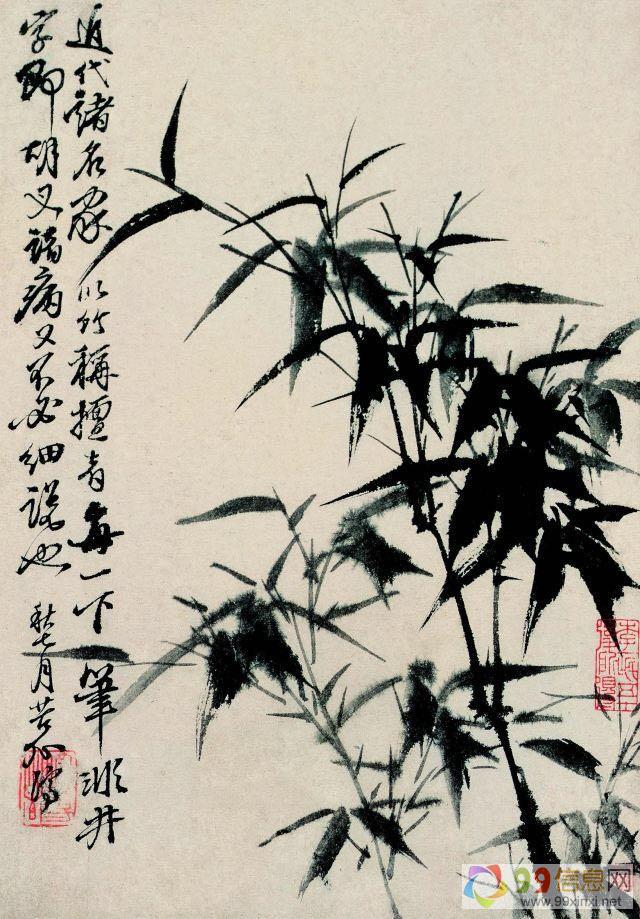 近代諸名家以竹稱擅者每一下筆非井
字即胡叉諸病又不必細說也
秋七月苦瓜濟
99信息网
www.99xinxi.net